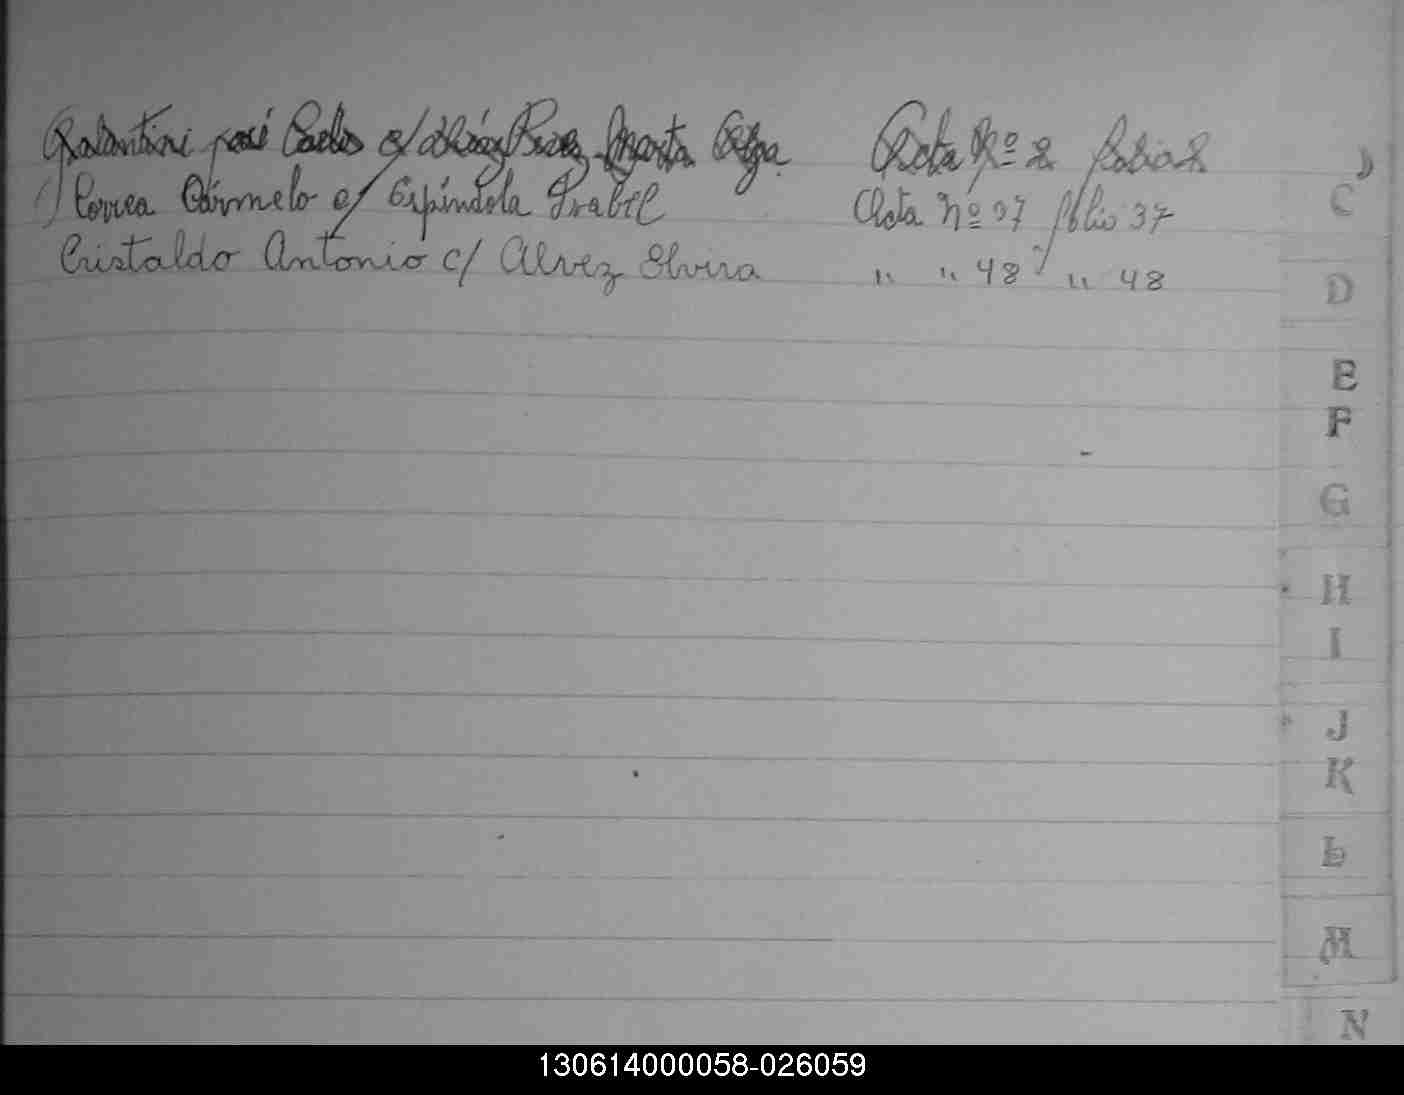 José Carlos c/ Marta Olga Acta Nº 2 folio 2
Correa Cármelo c/ Espíndola Isabel Acta Nº 37 folio 37
Cristaldo Antonio c/ Alvez Elvira " " 48 " 48
C
D
E
F
G
H
I
J
K
L
M
N
130614000058-026059